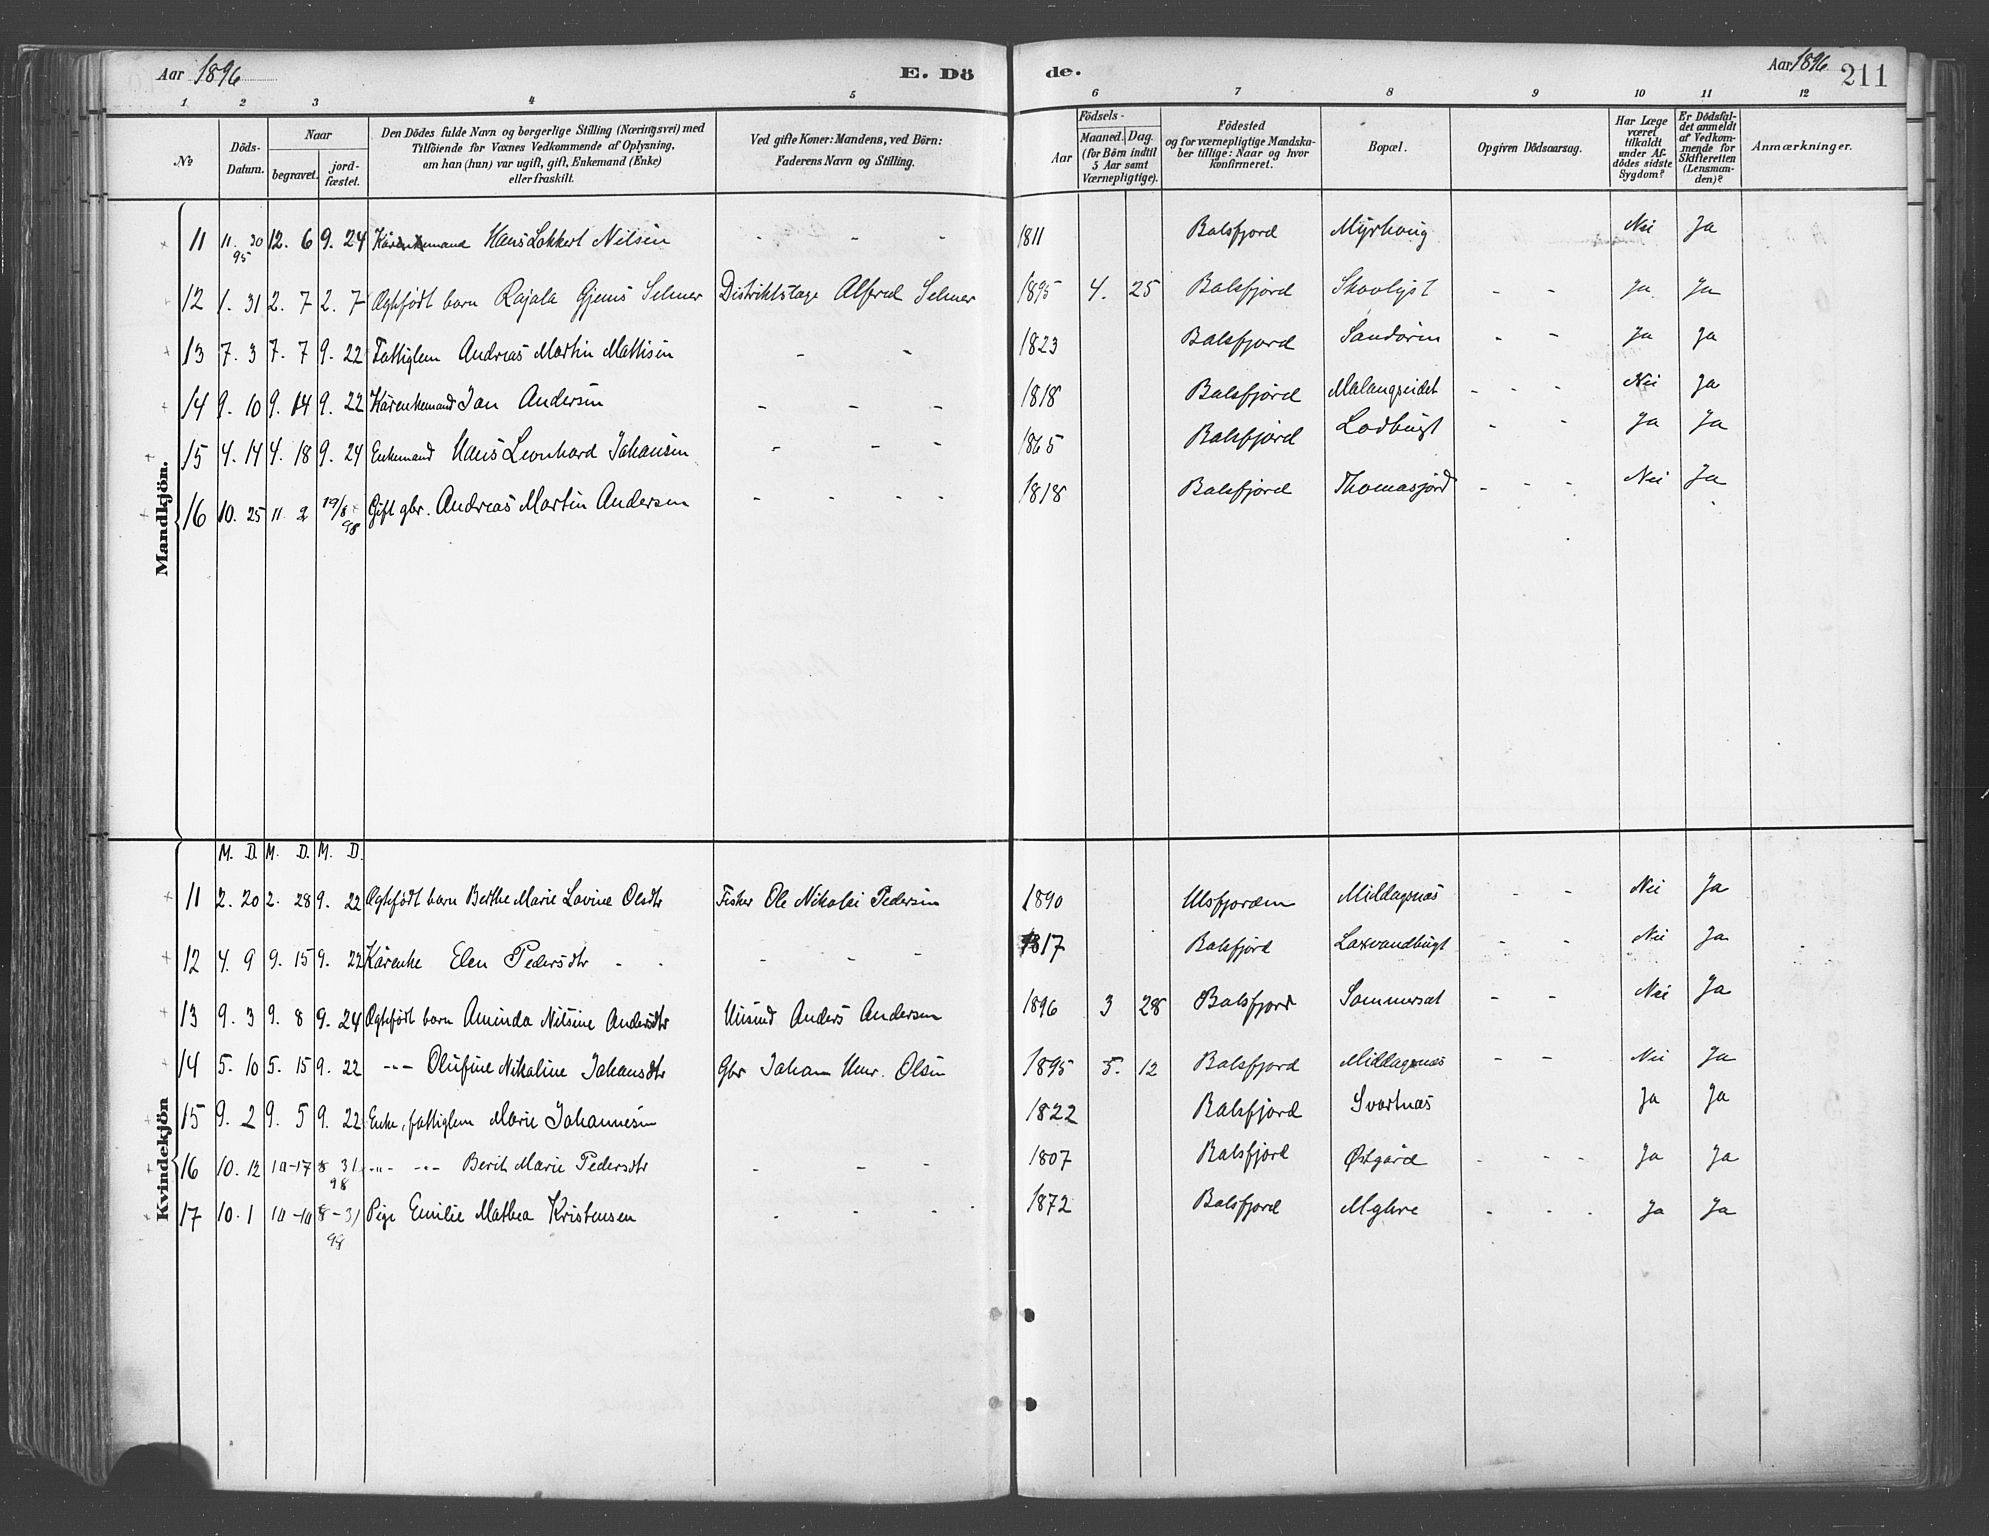 Aar 1896 E. Dö de. Aar 1896 211
1 2 3 4 5 6 7 8 9 10 11 12
№ Döds-Datum. Naar begravet. jord-fæstet. Den Dödes fulde Navn og borgerlige Stilling (Næringsvei) med Tilföiende for Voxnes Vedkommende af Oplysning, om han (hun) var ugift, gift, Enkemand (Enke) eller fraskilt. Ved gifte Koner: Mandens, ved Börn: Faderens Navn og Stilling. Födsels- Aar Maaned. Dag. (for Börn indtil 5 Aar samt Værnepligtige). Födested og for værnepligtige Mandskaber tillige: Naar og hvor konfirmeret. Bopæl. Opgiven Dödsaarsag. Har Læge været tilkaldt under Afdödes sidste Sygdom? Er Dödsfaldet anmeldt af Vedkommende for Skifteretten (Lensmanden)? Anmærkninger.
Mandkjön.
11 11. 30 95 12. 6 9. 24 Hans Lokkert Nilsen - - - 1811 Balsfjord Myrhoug Nei Ja
12 1. 31 2. 7 2. 7 Ægtefödt barn Rajala Gjems Selmer Distriktslæge Alfred Selmer 1895 4. 25 Balsfjord Skovlyst - - Ja Ja
13 7. 3 7. 7 9. 22 Fattiglem Andreas Martin Mattisen - - 1823 Balsfjord Sandøren - - Ja Ja
14 9. 10 9. 14 9. 22 Kårenkemand Jan Andersen - - - 1818 Balsfjord Malangseidet - - - Nei Ja
15 4. 14 4. 18 9. 24 Enkemand Hans Leonhard Johansen - - - 1865 Balsfjord Lodbugt - - Ja Ja
16 10. 25 11. 2 19/8 98 Gift gbr. Andreas Martin Andersen - - - - 1818 Balsfjord Thomasjord - - - Nei Ja
Kvindekjön
M. D. M. D. M. D.
11 2. 20 2. 28 9. 22 Ægtefödt barn Berthe Marie Lovine Olsdtr Fisker Ole Nikolai Pedersen 1890 Ulsfjorden Middagsnæs - - Nei Ja
12 4. 9 9. 15 9. 22 Kårenke Elen Pedersdtr - - - - - 1817 Balsfjord Laxvandbugt - - Nei Ja
13 9. 3 9. 8 9. 24 Ægtefödt barn Aminda Nilsine Andersdtr Anders Andersen 1896 3 28 Balsfjord Sommersæt - - Nei Ja
14 5. 10 5. 15 9. 22 -"- Olufine Nikoline Johansdtr Gbr Johan Olsen 1895 5. 12 Balsfjord Middagsnæs - - Nei Ja
15 9. 2 9. 5 9. 22 Enke, fattiglem Marie Johannesen 1822 Balsfjord Svartnæs Ja Ja
16 10. 12 10-17 8 31 98 -"- -"- Berit Marie Pedersdtr - - - 1807 Balsfjord Østgård - - - Ja Ja
17 10. 1 10-10 8-31 98 Pige Emilie Mathea Kristensen - - - 1872 Balsfjord - - - Ja Ja